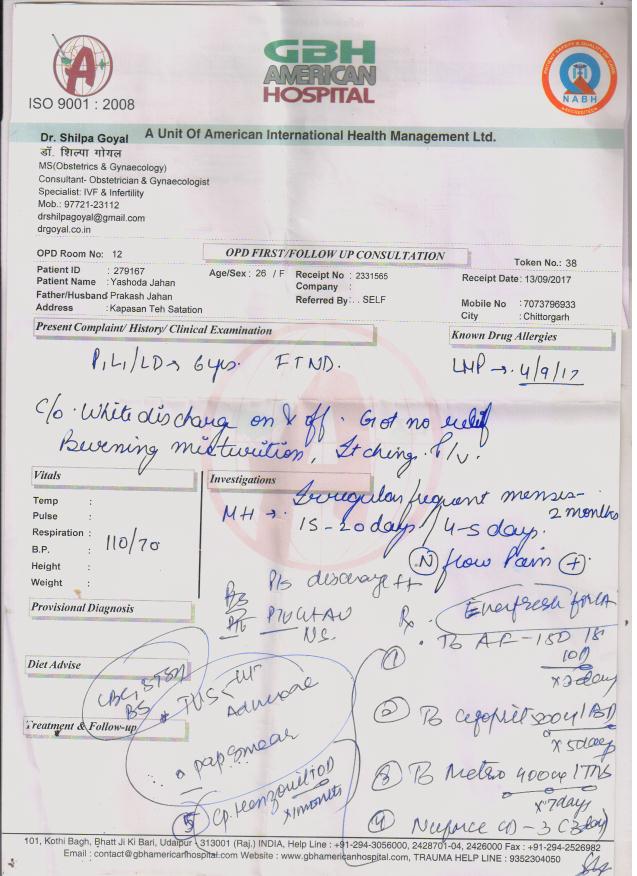 A
ISO 9001 : 2008
GBH
AMERICAN
HOSPITAL
PATIENT SAFETY & QUALITY OF CARE
NABH
ACCREDITED
A Unit Of American International Health Management Ltd.
Dr. Shilpa Goyal
डॉ. शिल्पा गोयल
MS(Obstetrics & Gynaecology)
Consultant- Obstetrician & Gynaecologist
Specialist: IVF & Infertility
Mob.: 97721-23112
drshilpagoyal@gmail.com
drgoyal.co.in
OPD Room No: 12
OPD FIRST/FOLLOW UP CONSULTATION
Token No.: 38
Patient ID : 279167
Age/Sex : 26 / F
Receipt No : 2331565
Receipt Date: 13/09/2017
Patient Name : Yashoda Jahan
Company :
Father/Husband Prakash Jahan
Referred By : . . SELF
Mobile No : 7073796933
Address : Kapasan Teh Satation
City : Chittorgarh
Present Complaint/ History/ Clinical Examination
Known Drug Allergies
P1L1/LD → 6 yrs. FTND.
LMP → 4/9/17
C/o White discharge on & off. Got no relief
Burning micturition, Itching P/V.
Vitals
Investigations
Irregular frequent menses - 2 months
MH → 15-20 days / 4-5 day.
(N) flow Pain (+).
Temp :
Pulse :
Respiration :
B.P. : 110/70
Height :
Weight :
P/S discharge ++
P/V UT AV
NS.
Provisional Diagnosis
Rx
Diet Advise
Treatment & Follow-up
CBC,
BS
* TVS
pap smear
① Tb AF-150
x 2 day
② Tb 500 1 BD
x 5 day
③ Tb Metro 400 1 TDS
x 7 days
④ - 3
⑤ Cp.
x 1 month
101, Kothi Bagh, Bhatt Ji Ki Bari, Udaipur - 313001 (Raj.) INDIA, Help Line : +91-294-3056000, 2428701-04, 2426000 Fax : +91-294-2526982
Email : contact@gbhamericanhospital.com Website : www.gbhamericanhospital.com, TRAUMA HELP LINE : 9352304050